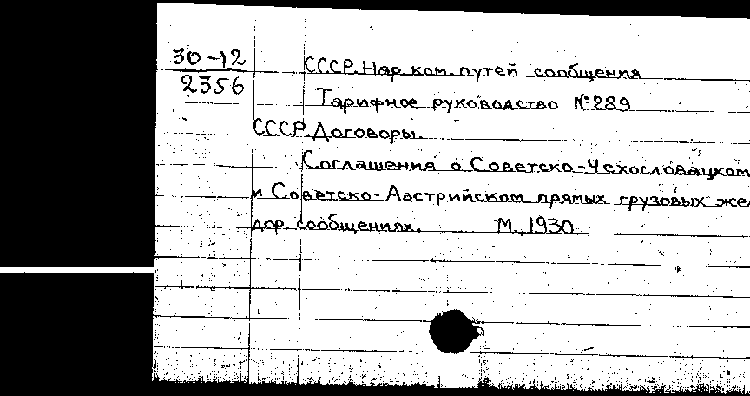 30-12
2356
СССР. Нар. ком. путей сообщения
Тарифное руководство № 289
СССР. Договоры.
Соглашения о Советско-Чехословацком
и Советско-Австрийском прямых грузовых же
дор. сообщениях. М., 1930